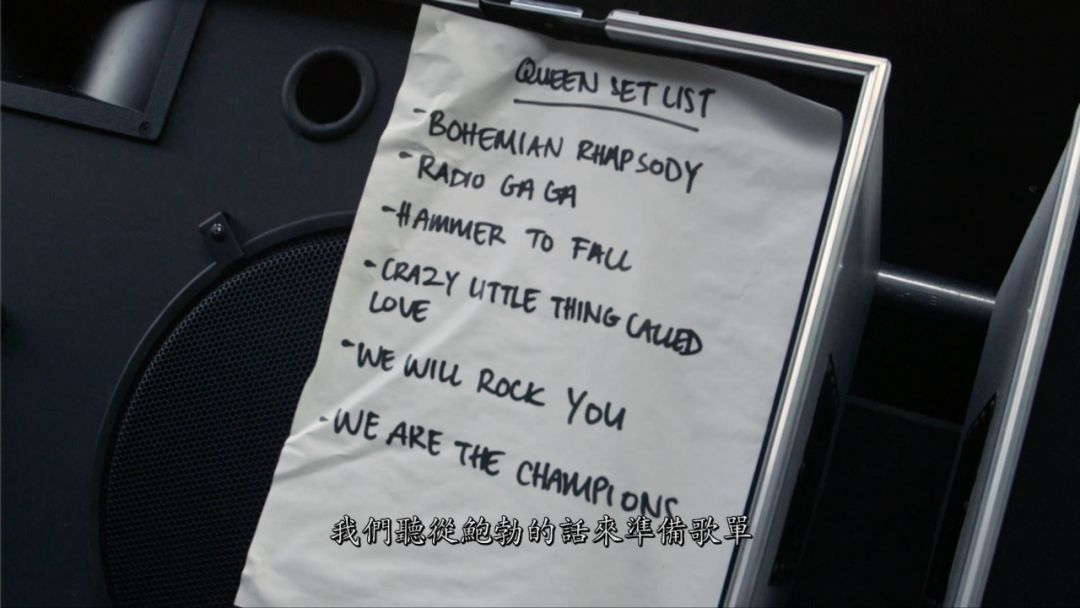 QUEEN SET LIST
- BOHEMIAN RHAPSODY
- RADIO GA GA
- HAMMER TO FALL
- CRAZY LITTLE THING CALLED
LOVE
- WE WILL ROCK YOU
- WE ARE THE CHAMPIONS
我們聽從鮑勃的話來準備歌單